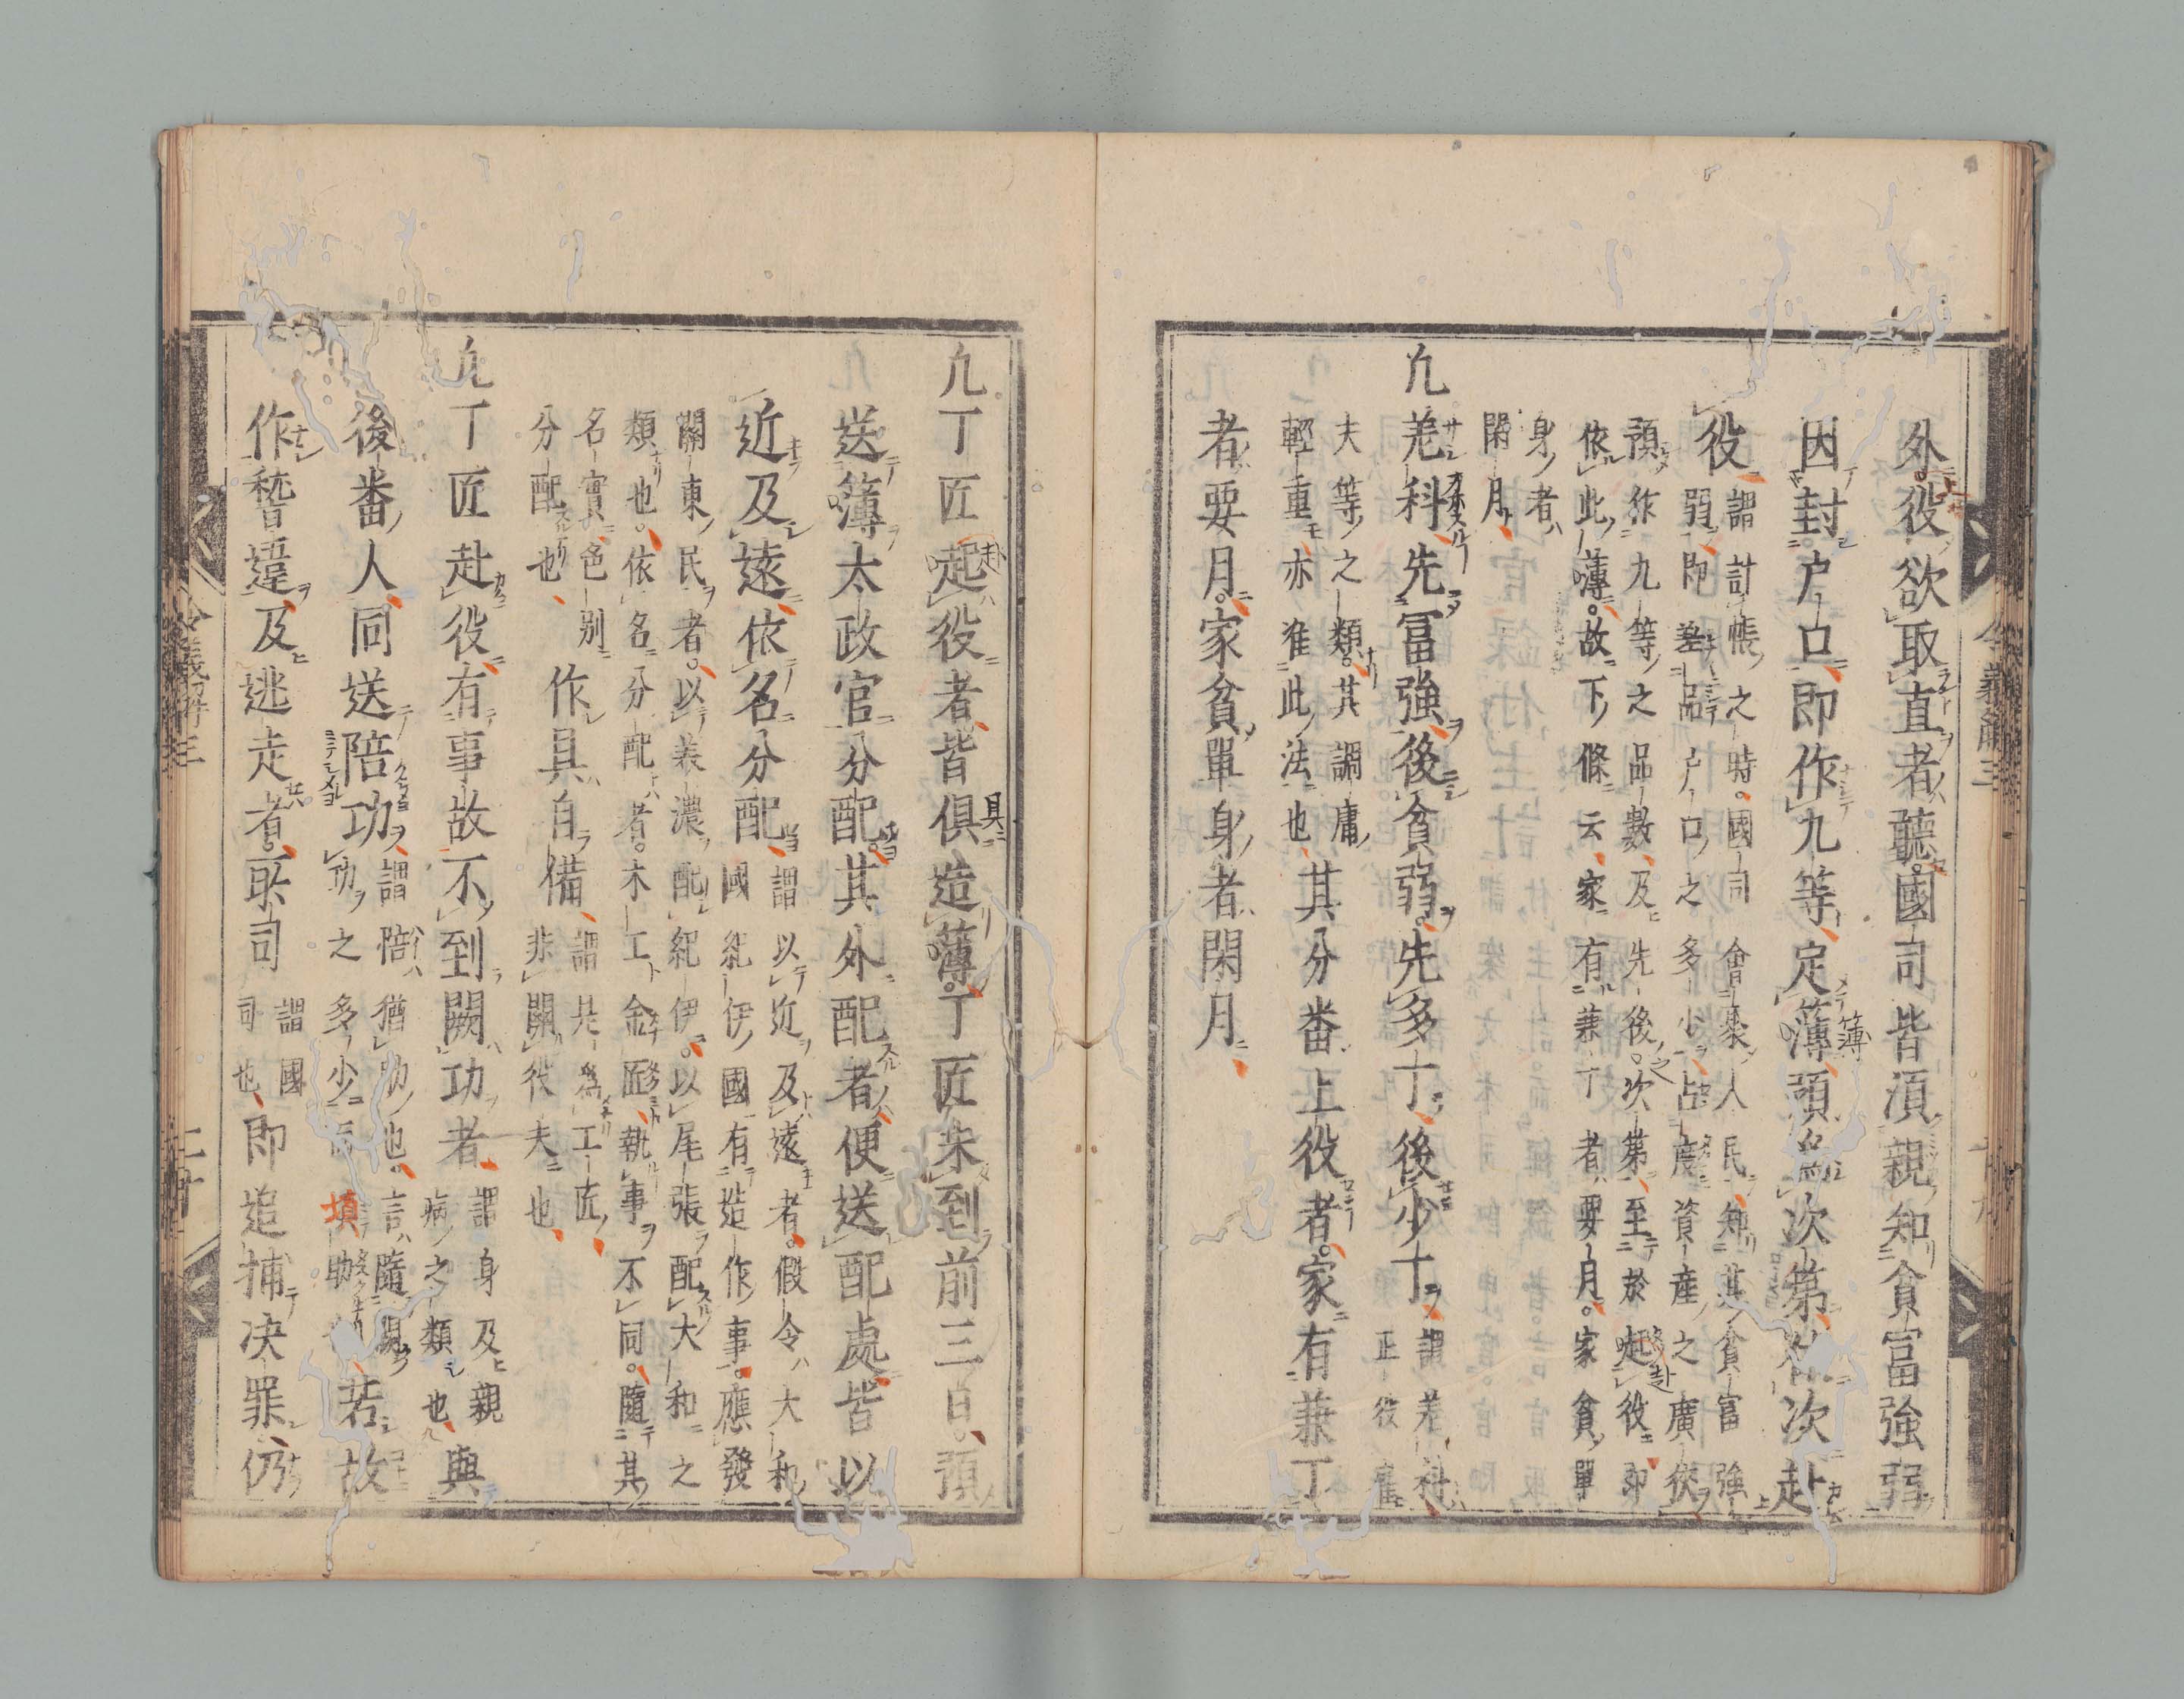 外役欲取直者聽國司皆湏親知貧富強弱
因封戸口即作九等定薄預爲次第依次赴
役
謂計帳之時國司會集人民知其貧富強
弱即差品戸口之多少占資産之廣狹
預作九等之品數及先後次第至於起役即
依此薄故下條云家有兼丁者要月家貧單
身者
閑月
凢差科先冨強後貧弱先多丁後少丁
謂差科
正役雇
夫等之類其調庸
輕重亦准此法也
其分番上役者家有兼丁
者要月家貧單身者閑月
凢丁匠起役者皆俱造薄丁匠未到前三日預
送簿太政官分配其外配者便送配處皆以
近及遠依名分配
謂以近及遠者假令大和
國紀伊國有造作事應發
關東民者以美濃配紀伊以尾張配大和之
類也依名分配者木工金匠執事不同隨其
名實色別
分配也
作具自備
謂是爲工匠
非關役夫也
凢丁匠赴役有事故不到闕功者
謂身及親
病之類也
與
後番人同送陪功
謂陪猶助也言隨闕
功之多少填助
若故
作稽違及逃走者所司
謂國
司也
即追捕決罪仍
令義解三
令義解三